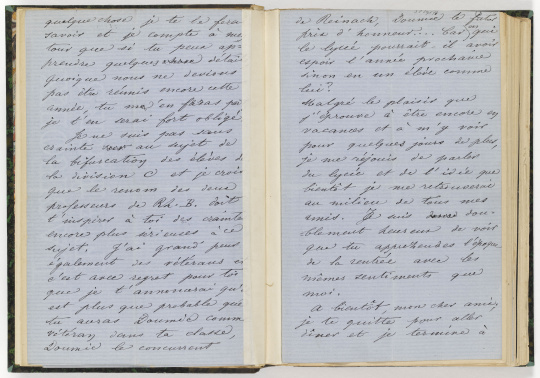 quelque chose, je te le ferai
savoir et je compte à mon
tour que si tu peux ap-
prendre quelques détails
quoique nous ne devions
pas être réunis encore cette
année, tu m'en feras part
je t'en serai fort obligé.
Je ne suis pas sans
crainte au sujet de
la bifurcation des élèves de
la division C et je crois
que le renom des deux
professeurs de Rh.-B. doit
t'inspirer à toi des craintes
encore plus sérieuses à ce
sujet. J'ai grand peur
également de vétérans et
c'est avec regret pour toi
que je t'annoncerai qu'il
est plus que probable que
tu auras Doumic comme
vétéran dans ta classe,
Doumic le concurrent
de Reinach, Doumic le futur
prix d'honneur... Car qui
le lycée pourrait-il avoir
l'année prochaine
sinon en un élève comme
lui?
Malgré le plaisir que
j'éprouve à être encore en
vacances et à m'y voir
pour quelques jours de plus,
je me réjouis de parler
du lycée et de l'idée que
bientôt je me retrouverai
au milieu de tous mes
amis. Je suis dou-
blement heureux de voir
que tu appréhendes l'époque
de la rentrée avec les
mêmes sentiments que
moi.
A bientôt, mon cher ami,
je te quitte pour aller
dîner et je termine à